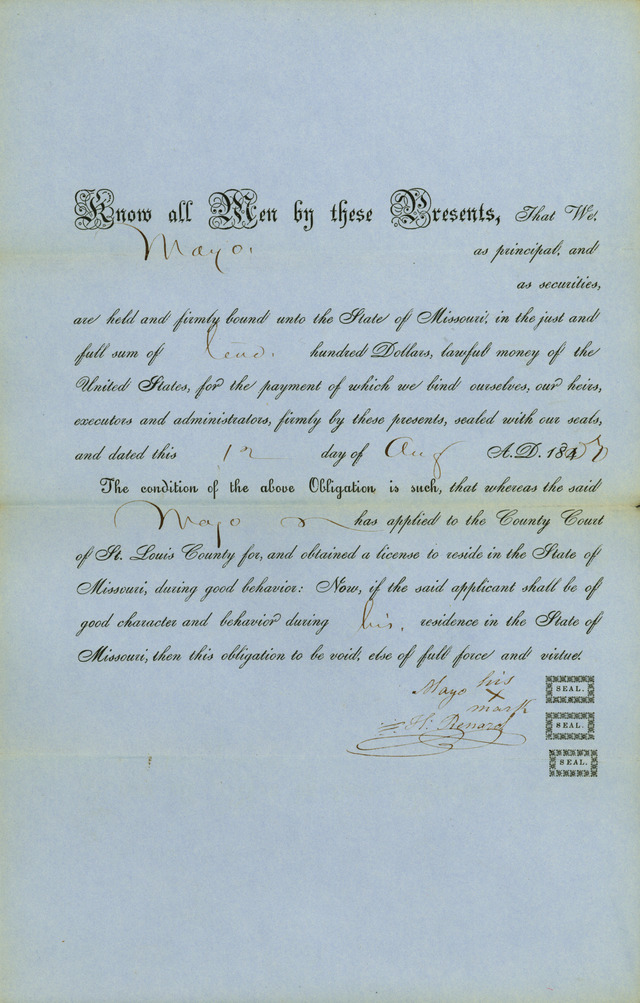 Know all Men by these Presents, That We,
Mayo. as principal, and
as securities,
are held and firmly bound unto the State of Missouri, in the just and
full sum of hundred Dollars, lawful money of the
United States, for the payment of which we bind ourselves, our heirs,
executors and administrators, firmly by these presents, sealed with our seals,
and dated this 12 day of Aug A.D. 184
The condition of the above Obligation is such, that whereas the said
Mayo has applied to the County Court
of St. Louis County for, and obtained a license to reside in the State of
Missouri, during good behavior: Now, if the said applicant shall be of
good character and behavior during his. residence in the State of
Missouri, then this obligation to be void, else of full force and virtue.
Mayo his
x
mark
H. Renard
SEAL.
SEAL.
SEAL.